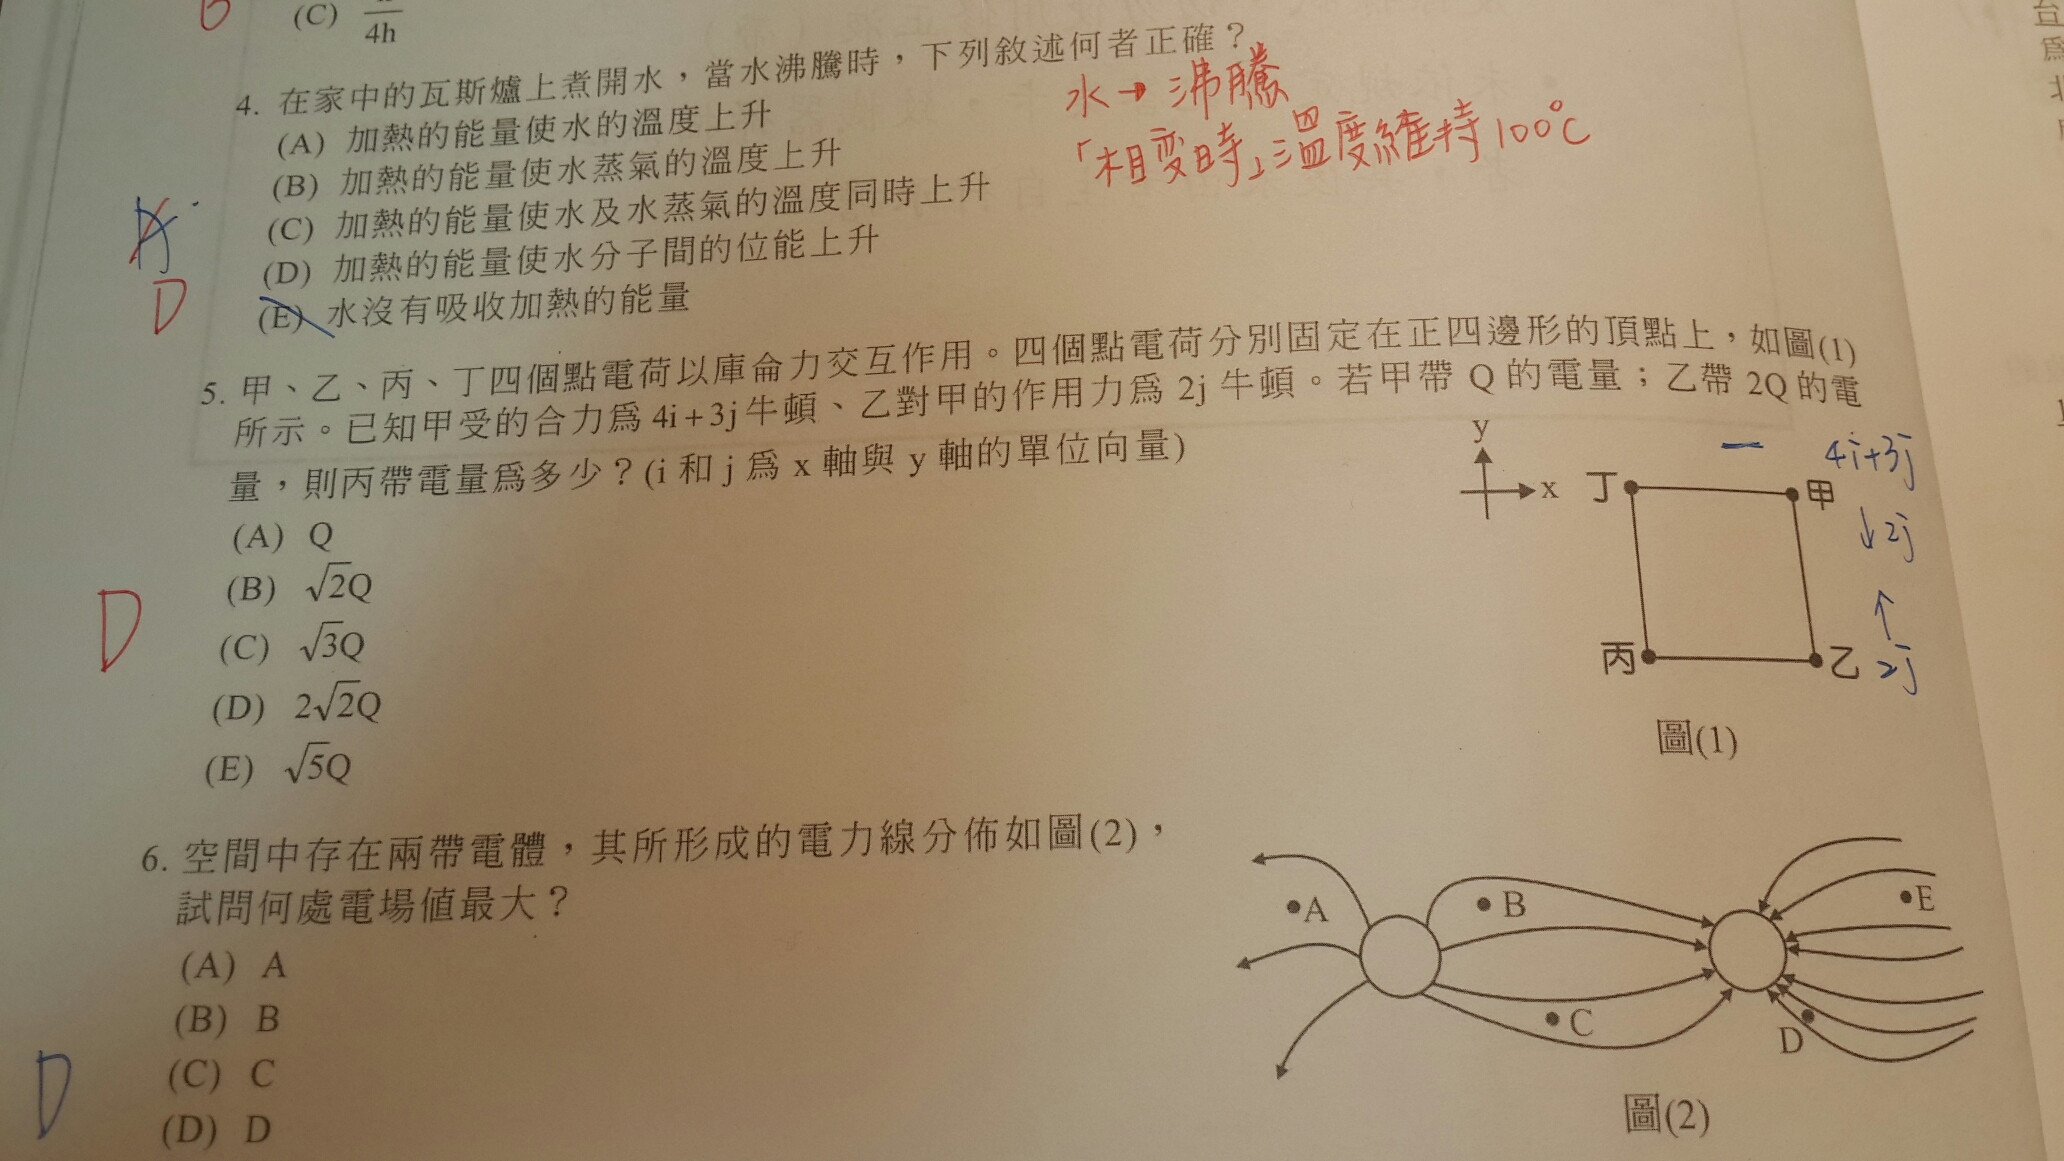 (C) 4h
4. 在家中的瓦斯爐上煮開水，當水沸騰時，下列敘述何者正確？
水→沸騰
「相変時」溫度維持100°C
(A) 加熱的能量使水的溫度上升
(B) 加熱的能量使水蒸氣的溫度上升
(C) 加熱的能量使水及水蒸氣的溫度同時上升
(D) 加熱的能量使水分子間的位能上升
(E) 水沒有吸收加熱的能量
A
D
5. 甲、乙、丙、丁四個點電荷以庫侖力交互作用。四個點電荷分別固定在正四邊形的頂點上，如圖(1)
所示。已知甲受的合力爲 4i+3j牛頓、乙對甲的作用力爲 2j 牛頓。若甲帶 Q 的電量；乙帶 2Q 的電
量，則丙帶電量爲多少？(i 和 j 爲 x 軸與 y 軸的單位向量)
(A) Q
(B) √2Q
(C) √3Q
(D) 2√2Q
(E) √5Q
D
y
x
丁
甲
丙
乙
4i+3j
↓2j
↑
2j
圖(1)
6. 空間中存在兩帶電體，其所形成的電力線分佈如圖(2)，
試問何處電場值最大？
(A) A
(B) B
(C) C
(D) D
D
A
B
C
D
E
圖(2)